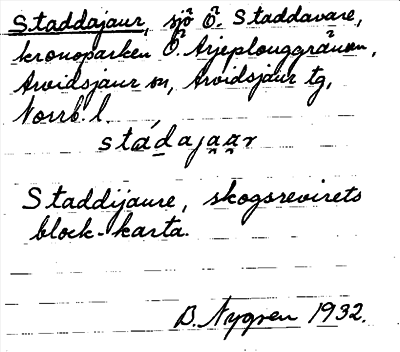 Staddajaur, sjö Ö. Staddavare,
kronoparken Ö. Arjeplouggränsen,
Arvidsjaur sn, Arvidsjaur tg,
Norrb. l.
stádajaar
Staddijaure, skogsrevirets
block-karta.
B. Nygren 1932.